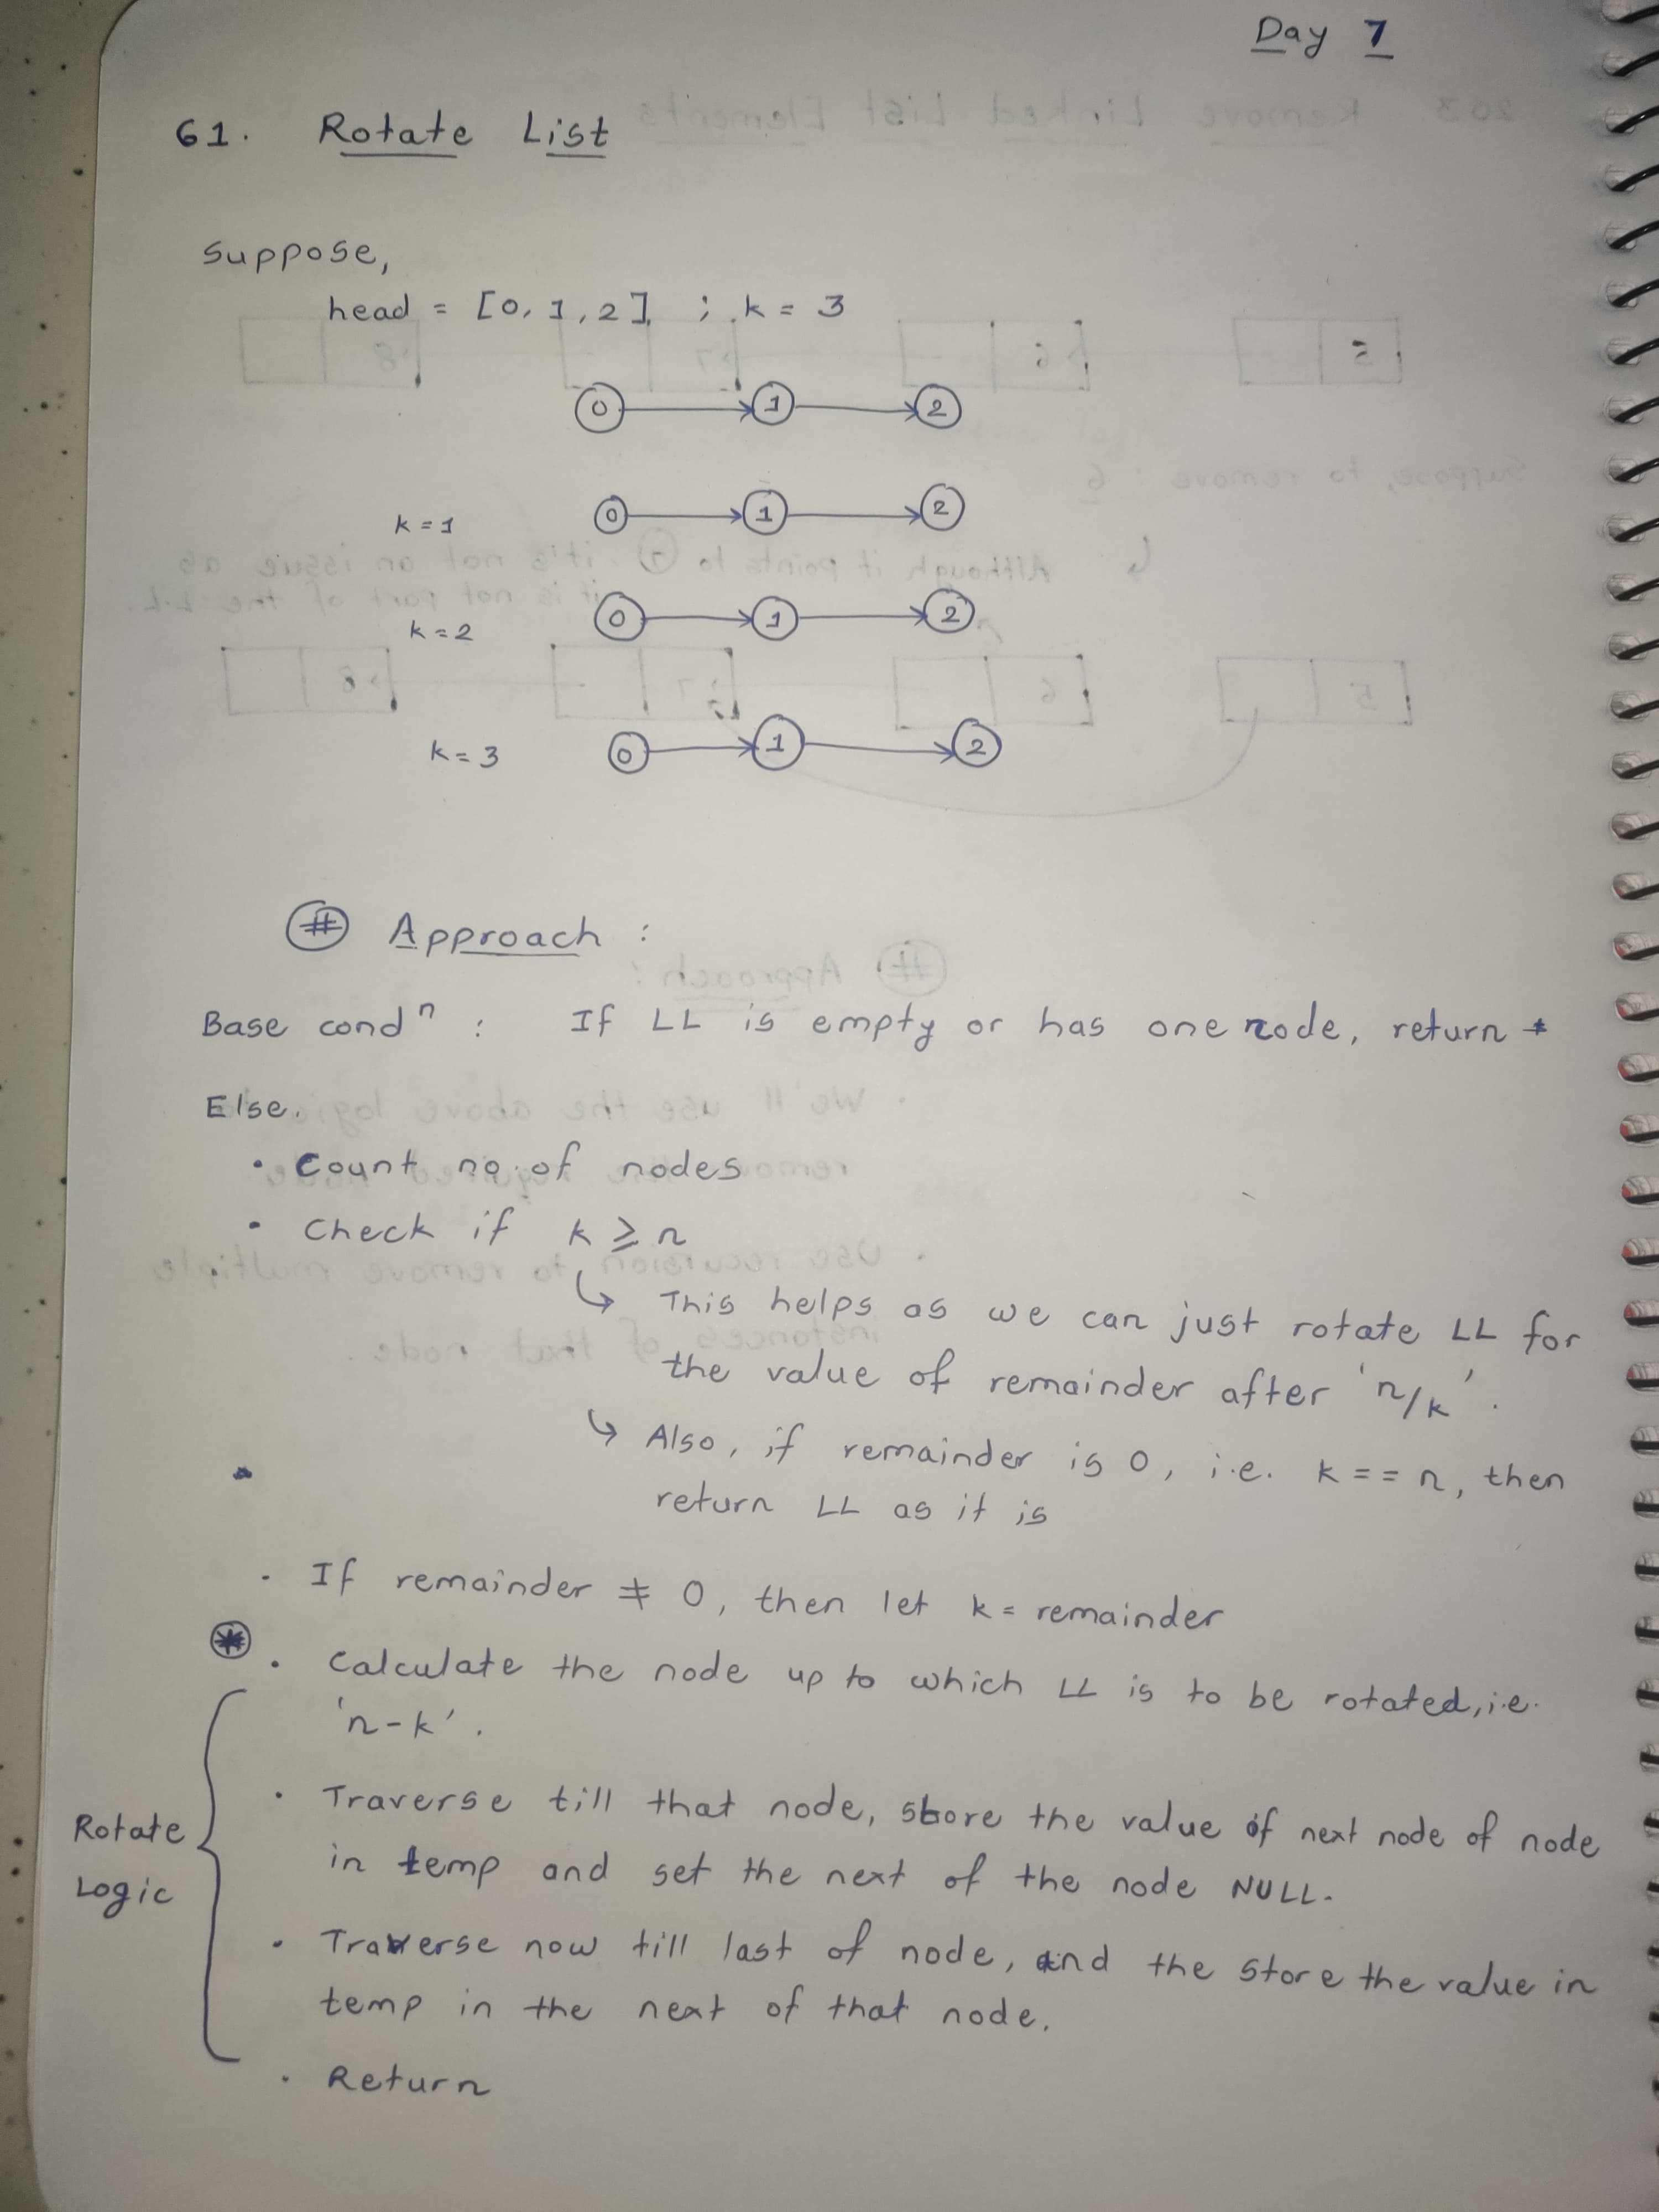 Day 7
61. Rotate List
Suppose,
head = [0, 1, 2] ; k = 3
0 1 2
k = 1 0 1 2
k = 2 0 1 2
k = 3 0 1 2
# Approach :
Base condⁿ : If LL is empty or has one node, return
Else.
• Count no. of nodes
• Check if k ⩾ n
↳ This helps as we can just rotate LL for
the value of remainder after 'n/k'.
↳ Also, if remainder is 0, i.e. k == n, then
return LL as it is
• If remainder ≠ 0, then let k = remainder
• Calculate the node up to which LL is to be rotated, i.e.
'n-k'.
• Traverse till that node, store the value of next node of node
in temp and set the next of the node NULL.
Rotate
Logic
• Traverse now till last of node, and the store the value in
temp in the next of that node.
• Return